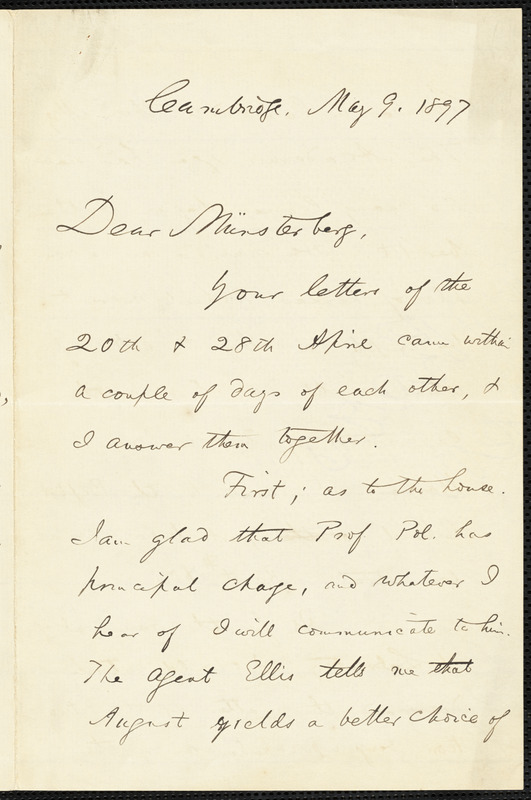 Cambridge. May 9. 1897
Dear Münsterberg,
Your letters of the
20th & 28th April came within
a couple of days of each other, &
I answer them together.
First; as to the house.
I am glad that Prof Pol. has
principal charge, and whatever I
hear of I will communicate to him.
The agent Ellis tells me that
August yields a better choice of